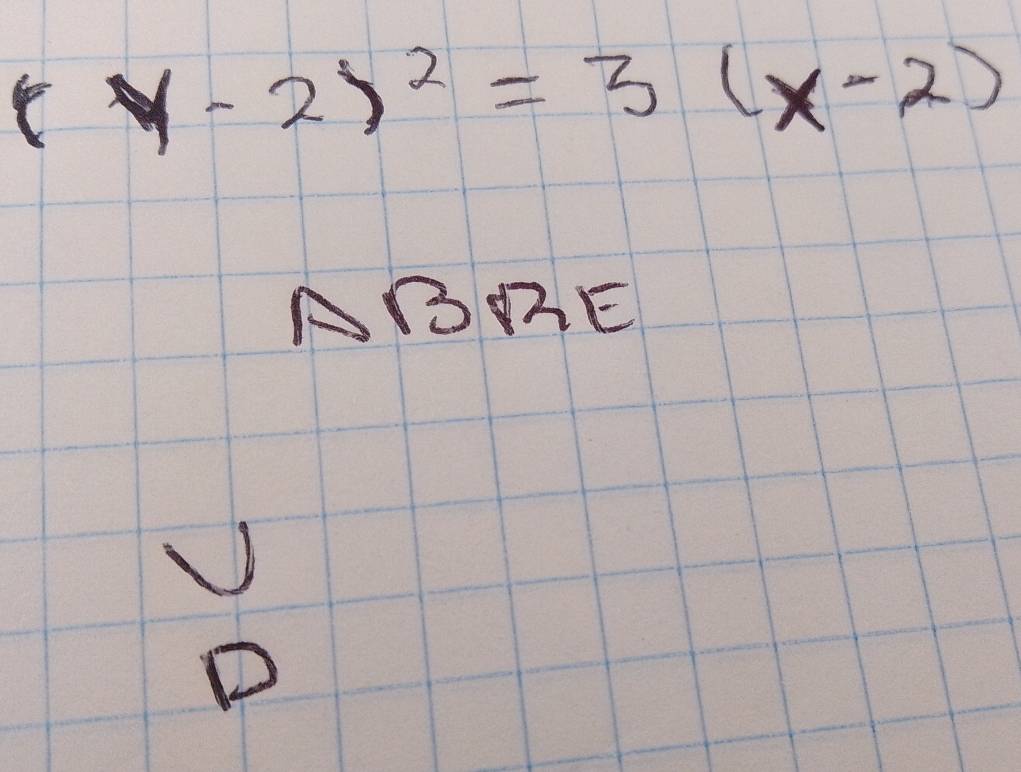 (y-2)² = 3 (x-2)
ABRE
V
D